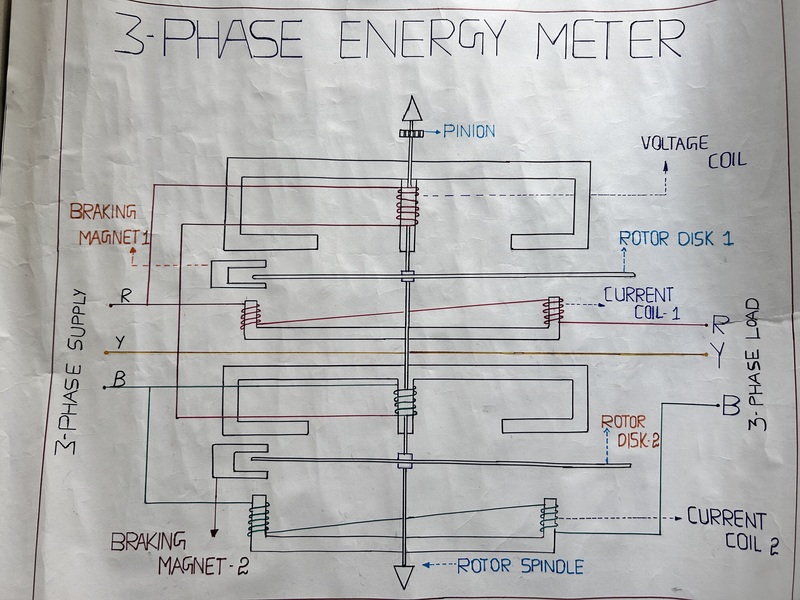 3-PHASE ENERGY METER
PINION
VOLTAGE
COIL
BRAKING
MAGNET1
ROTOR DISK 1
R
CURRENT
COIL-1
R
3-PHASE SUPPLY
Y
Y
3-PHASE LOAD
B
B
ROTOR
DISK-2
BRAKING
MAGNET-2
CURRENT
COIL 2
ROTOR SPINDLE